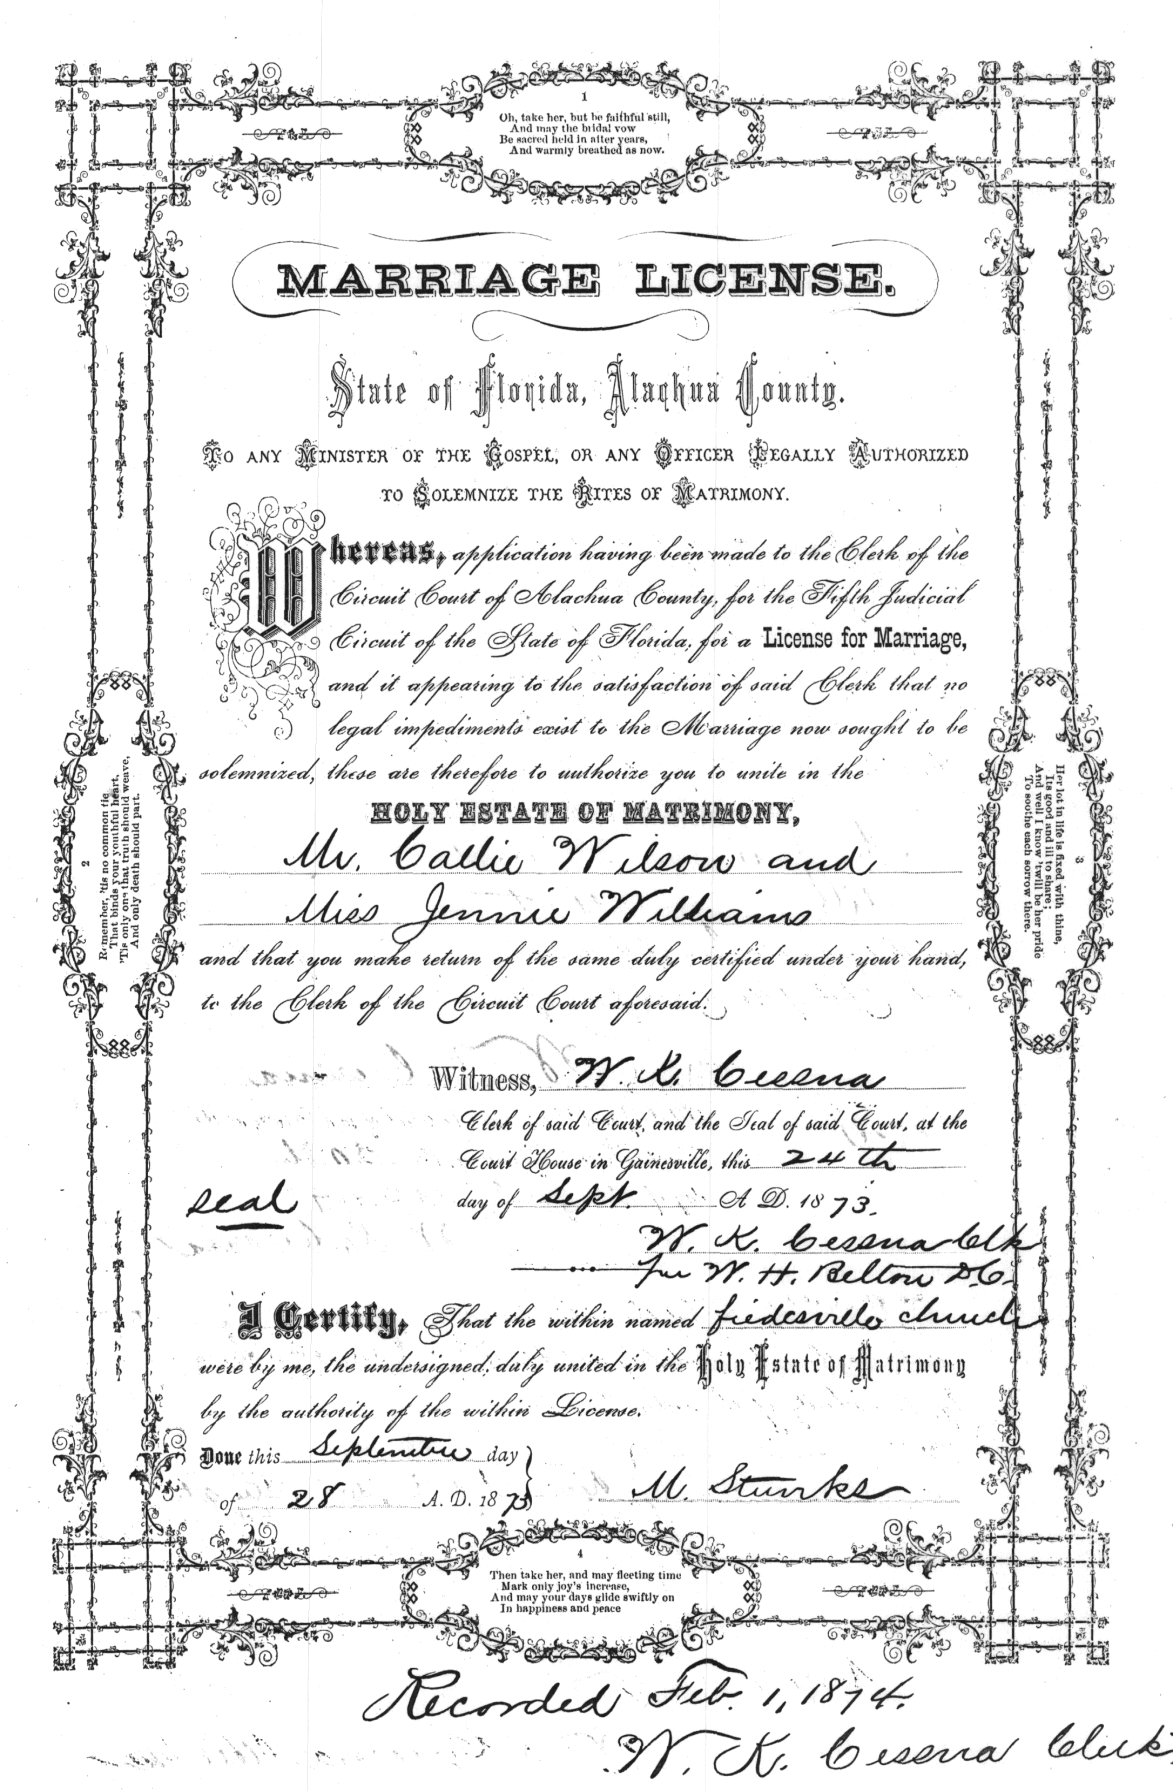 1
Oh, take her, but be faithful still,
And may the bridal vow
Be sacred held in after years,
And warmly breathed as now.
MARRIAGE LICENSE.
State of Florida, Alachua County.
TO ANY MINISTER OF THE GOSPEL, OR ANY OFFICER LEGALLY AUTHORIZED
TO SOLEMNIZE THE RITES OF MATRIMONY.
Whereas, application having been made to the Clerk of the
Circuit Court of Alachua County, for the Fifth Judicial
Circuit of the State of Florida, for a License for Marriage,
and it appearing to the satisfaction of said Clerk that no
legal impediments exist to the Marriage now sought to be
solemnized, these are therefore to authorize you to unite in the
HOLY ESTATE OF MATRIMONY,
Mr. Callie Wilson and
Miss Jennie Williams
and that you make return of the same duly certified under your hand,
to the Clerk of the Circuit Court aforesaid.
2
Remember, 'tis no common tie
That binds your youthful heart,
'Tis only one that truth should weave,
And only death should part.
3
Her lot in life is fixed with thine,
Its good and ill to share;
And well I know 'twill be her pride
To soothe each sorrow there.
Witness, W. K. Cessna
Clerk of said Court, and the Seal of said Court, at the
Court House in Gainesville, this 24th
seal
day of Sept. A D. 1873.
W. K. Cessna Clk
W. H. Belton D.C.
I Certify, That the within named church
were by me, the undersigned, duly united in the Holy Estate of Matrimony
by the authority of the within License.
Done this September day
of 28 A. D. 1873
M.
4
Then take her, and may fleeting time
Mark only joy's increase,
And may your days glide swiftly on
In happiness and peace
Recorded Feb. 1, 1874.
W. K. Cessna Clerk